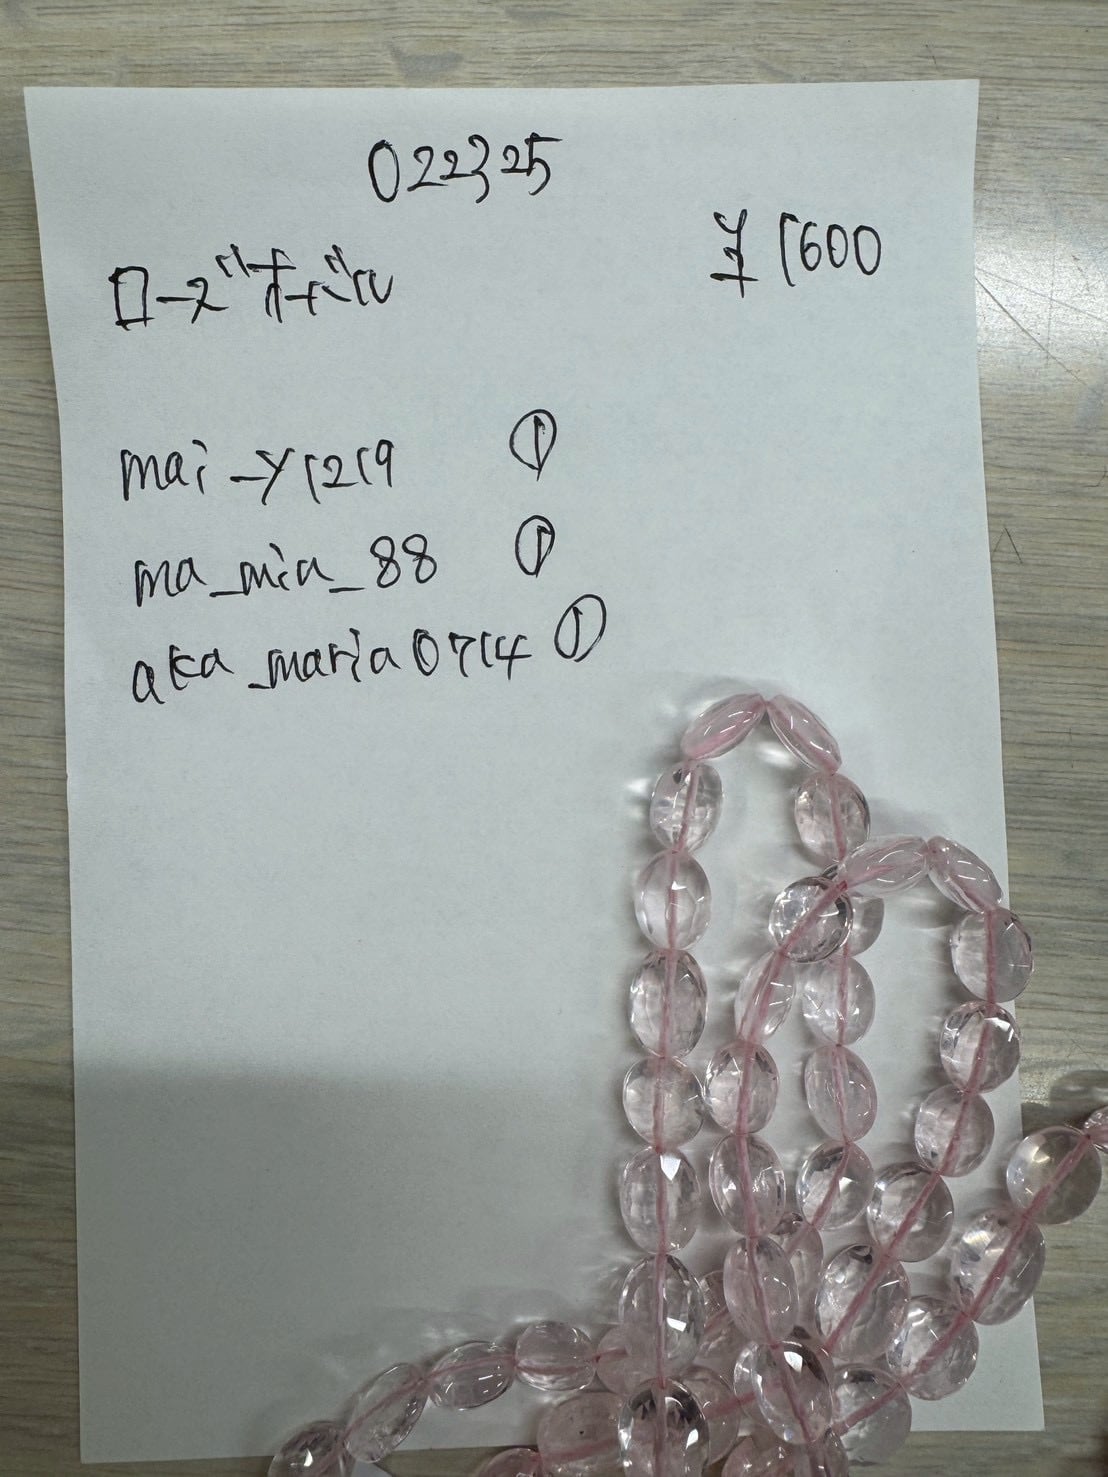 022325
¥1600
ローズオーバル
mai_y1219 ①
ma_mia_88 ①
aka_maria0714 ①